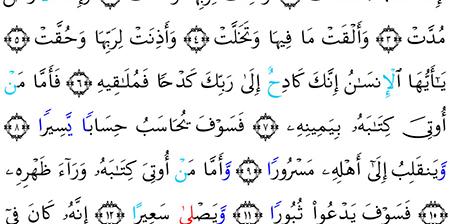 مُدَّتْ ﴿٣﴾ وَأَلْقَتْ مَا فِيهَا وَتَخَلَّتْ ﴿٤﴾ وَأَذِنَتْ لِرَبِّهَا وَحُقَّتْ ﴿٥﴾
يَـٰٓأَيُّهَا ٱلْإِنسَـٰنُ إِنَّكَ كَادِحٌ إِلَىٰ رَبِّكَ كَدْحًا فَمُلَـٰقِيهِ ﴿٦﴾ فَأَمَّا مَنْ
أُوتِىَ كِتَـٰبَهُۥ بِيَمِينِهِۦ ﴿٧﴾ فَسَوْفَ يُحَاسَبُ حِسَابًا يَسِيرًا ﴿٨﴾
وَيَنقَلِبُ إِلَىٰٓ أَهْلِهِۦ مَسْرُورًا ﴿٩﴾ وَأَمَّا مَنْ أُوتِىَ كِتَـٰبَهُۥ وَرَآءَ ظَهْرِهِۦ
﴿١٠﴾ فَسَوْفَ يَدْعُوا۟ ثُبُورًا ﴿١١﴾ وَيَصْلَىٰ سَعِيرًا ﴿١٢﴾ إِنَّهُۥ كَانَ فِىٓ